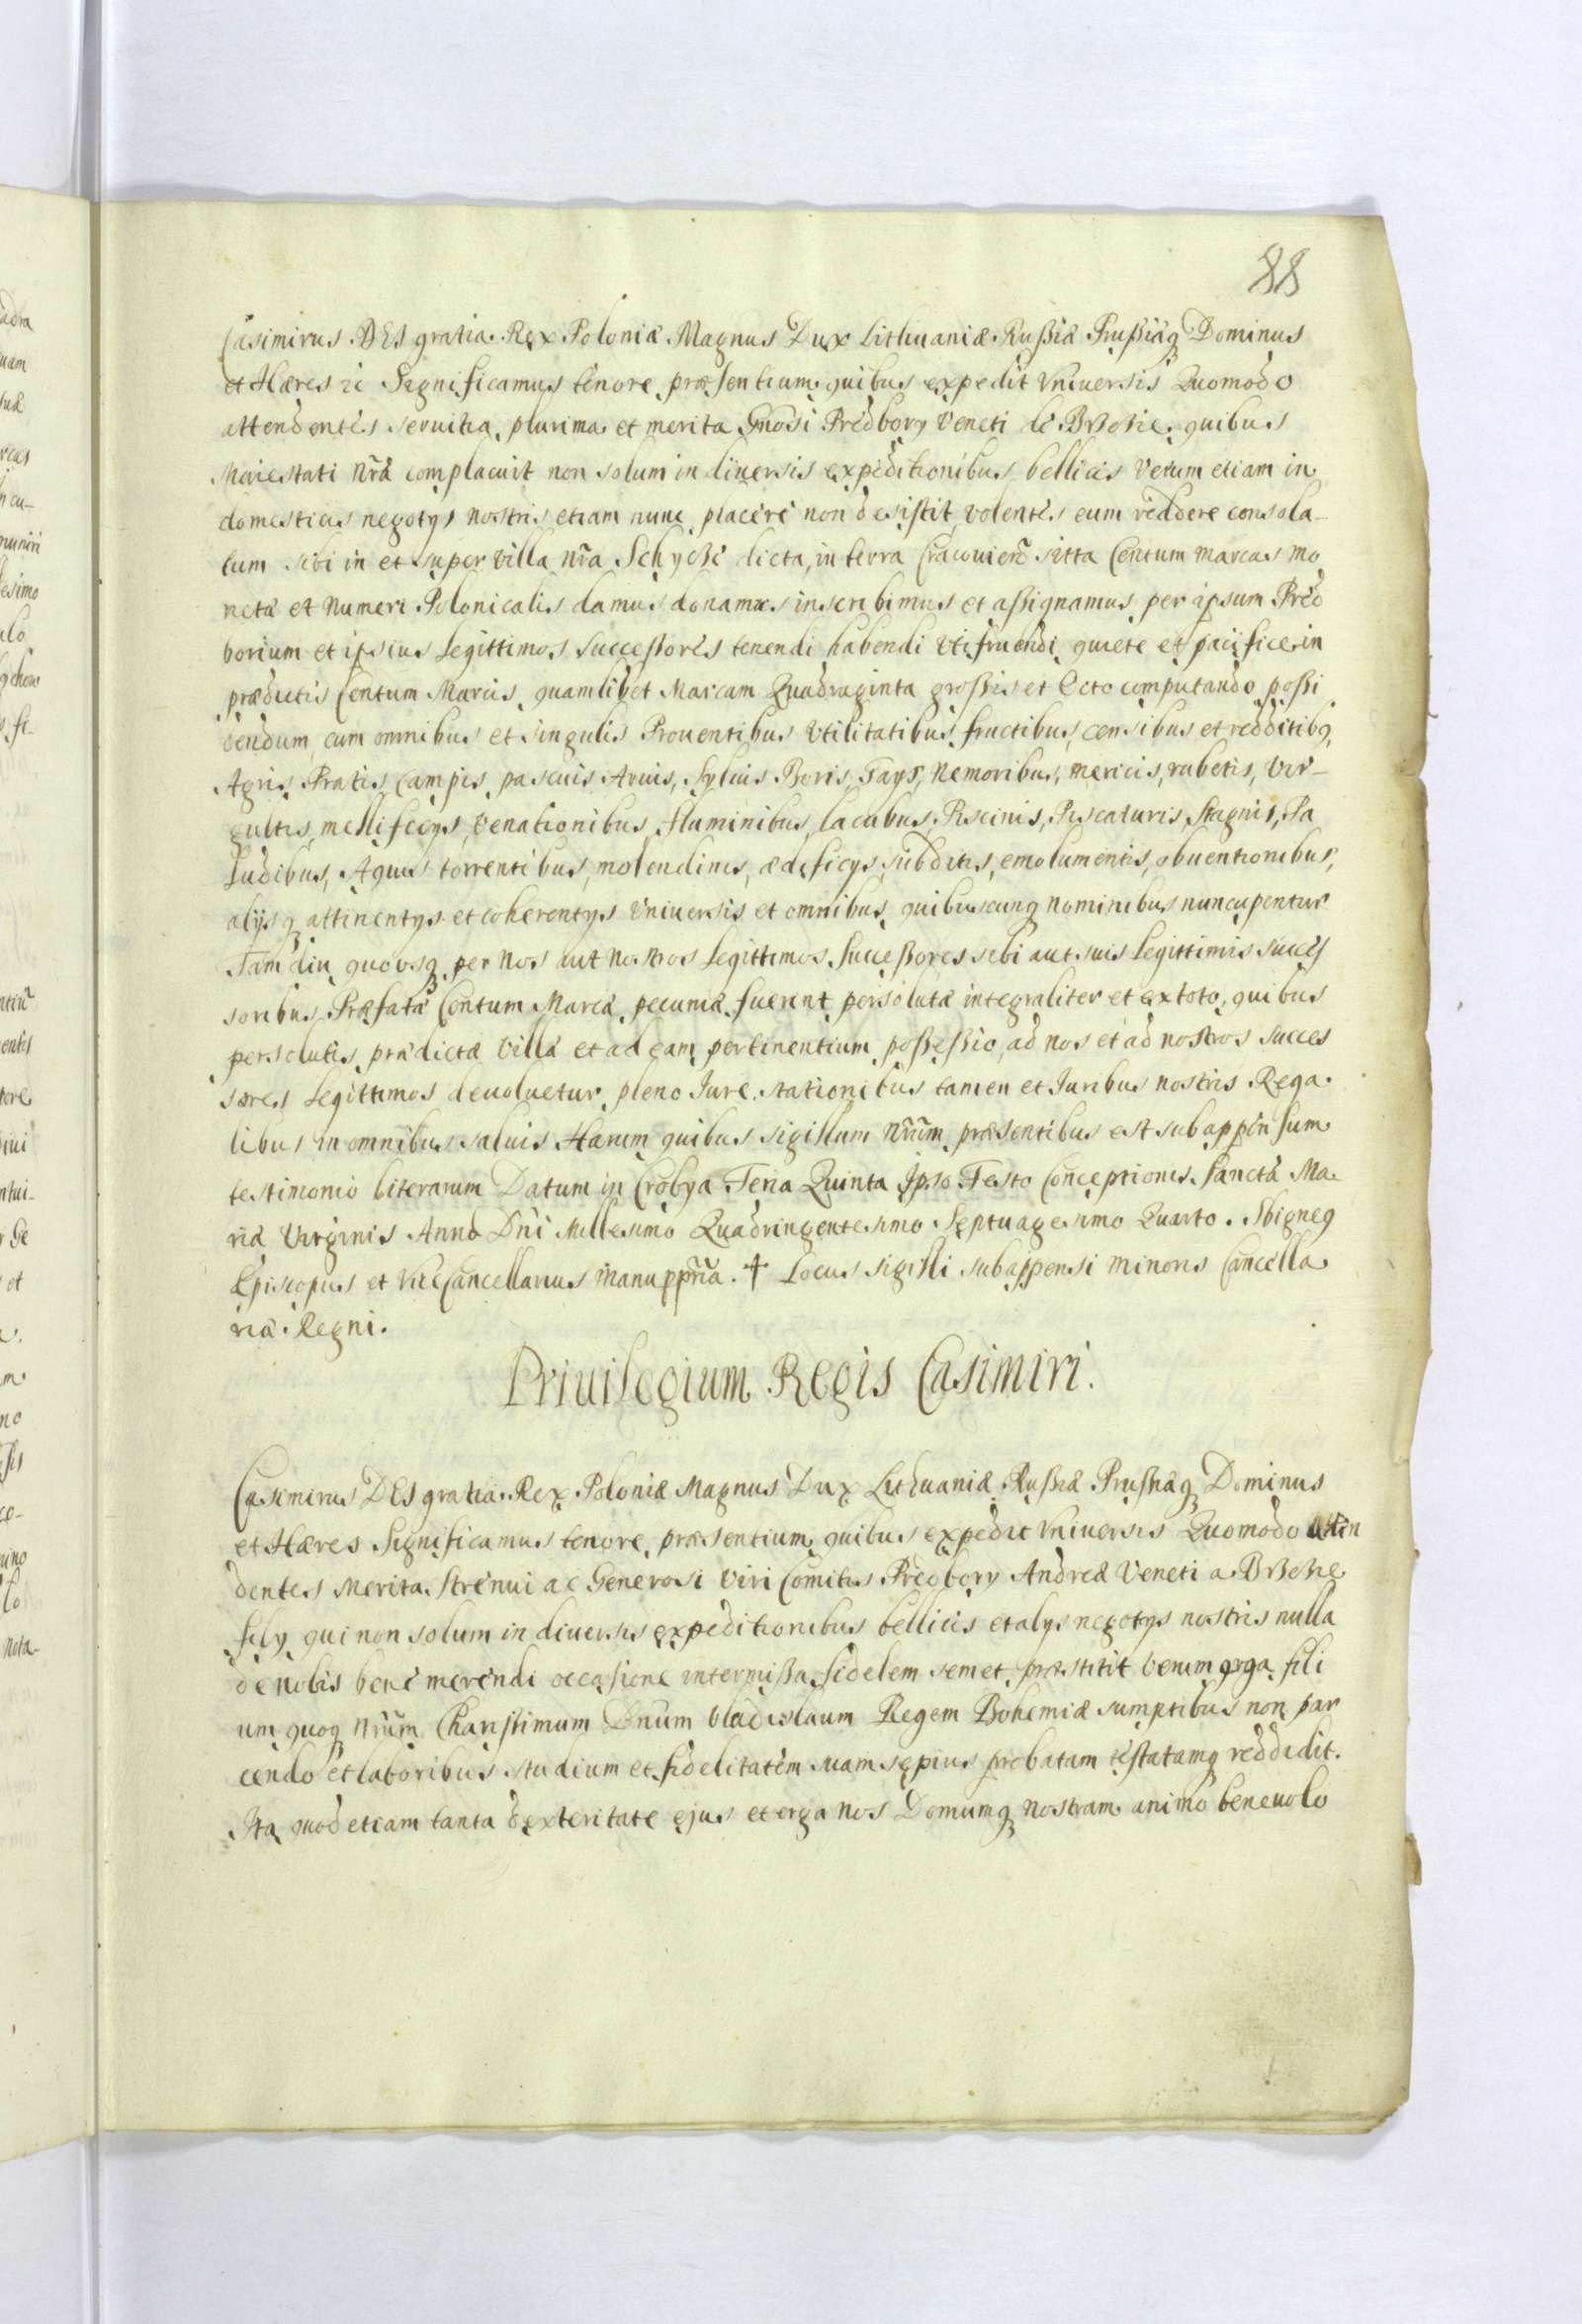 88
Casimirus DEI gratia Rex Poloniæ Magnus Dux Lithuaniæ Rußiæ Prußiæq Dominus
et Hæres ic Significamus tenore præsentium quibus expedit Vniuersis Quomodo
attendentes seruitia plurima et merita Gnosi Predbory Veneti de Brzezie quibus
Maiestati nrã complacuit non solum in diuersis expeditionibus bellicis Verum etiam in
domesticis negotys nostris etiam nunc placere non desistit volentes eum reddere consola-
tum sibi in et super villa nrã Schyczi dicta, in terra Cracouien sitta Centum marcas mo
netæ et numeri Polonicalis damus donamus inscribimus et aßignamus per ipsum Pred
borium et ipsius Legittimos Succeßores tenendi habendi Vtifruendi quiete et pacifice in
prædictis Centum Marcis quamlibet Marcam Quadraginta großis et Octo computando poßi
dendum cum omnibus et singulis Prouentibus Vtilitatibus fructibus, censibus et redditibq
Agris Pratis Campis, pascuis Aruis, Syluis Boris, Gays, Nemoribus, mericis, rubetis, Vir-
gultis, mellificys, Venationibus, fluminibus, lacubus, Piscinis, Piscaturis, Stagnis, Pa
ludibus, Aquis torrentibus, molendinis, ædificys, subditis, emolumentis, obuentionibus,
alÿsq attinentys et coherentys Vniuersis et omnibus, quibuscunq nominibus nuncupentur
Tam diu quousq per Nos aut Nostros Legittimos Succeßores sibi aut suis Legittimis succes
soribus Præfatæ Centum Marcæ pecuniæ fuerint persolutæ integraliter et ex toto, quibus
persolutis prædictæ Villæ et ad eam pertinentium poßeßio, ad nos et ad nostros succes
sores Legittimos deuoluetur pleno Jure. Stationibus tamen et Juribus nostris Rega
libus in omnibus saluis Harum quibus sigillum nrũm præsentibus est subappensum
testimonio literarum Datum in Crobya Feria Quinta Ipso Festo Conceptionis Sanctæ Ma
riæ Virginis Anno Dni Millesimo Quadringentesimo Septuagesimo Quarto. Sbigneq
Episcopus et ViceCancellarius manu pprĩa. ✝ Locus sigilli subappensi minoris Cancella
riæ Regni.
Priuilegium Regis Casimiri.
Casimirus DEI gratia Rex Poloniæ Magnus Dux Lithuaniæ Rußiæ Prußiæq Dominus
et Hæres Significamus tenore præsentium quibus expedit Vniuersis Quomodo atten
dentes Merita Strenui ac Generosi Viri Comitis Predbory Andreæ Veneti a Brzezie
fily qui non solum in diuersis expeditionibus bellicis et alys negotys nostris nulla
de nobis bene merendi occasione intermißa fidelem semet præstitit Verum erga fili
um quoq nrũm Charissimum Dnum Vladislaum Regem Bohemiæ sumptibus non par
cendo et laboribus studium et fidelitatem suam sepius probatam testatamq reddidit.
Ita quod etiam tanta dexteritate ejus et erga nos Domumq nostram animo beneuolo